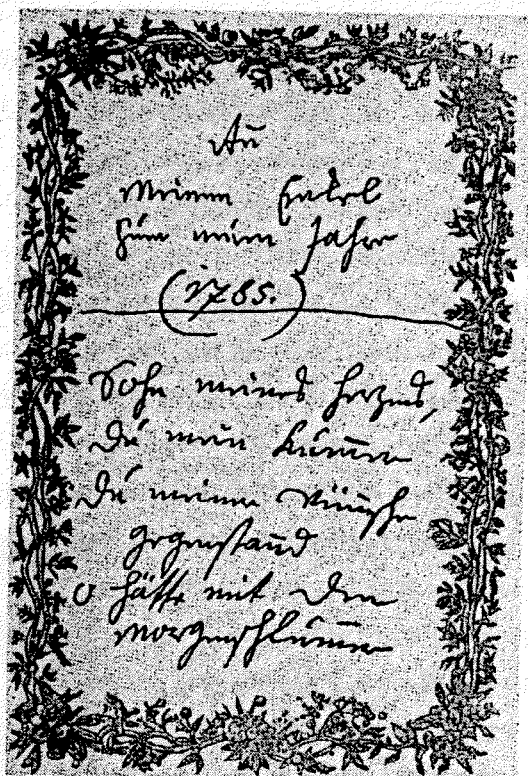 An
Meinen Enkel
zum neuen Jahre
(1785.)
Sohn meines Herzens,
Du mein Kum̄er
Du meiner Wünsche
Gegenstand
O hätte mit dem
Morgenschlum̄er